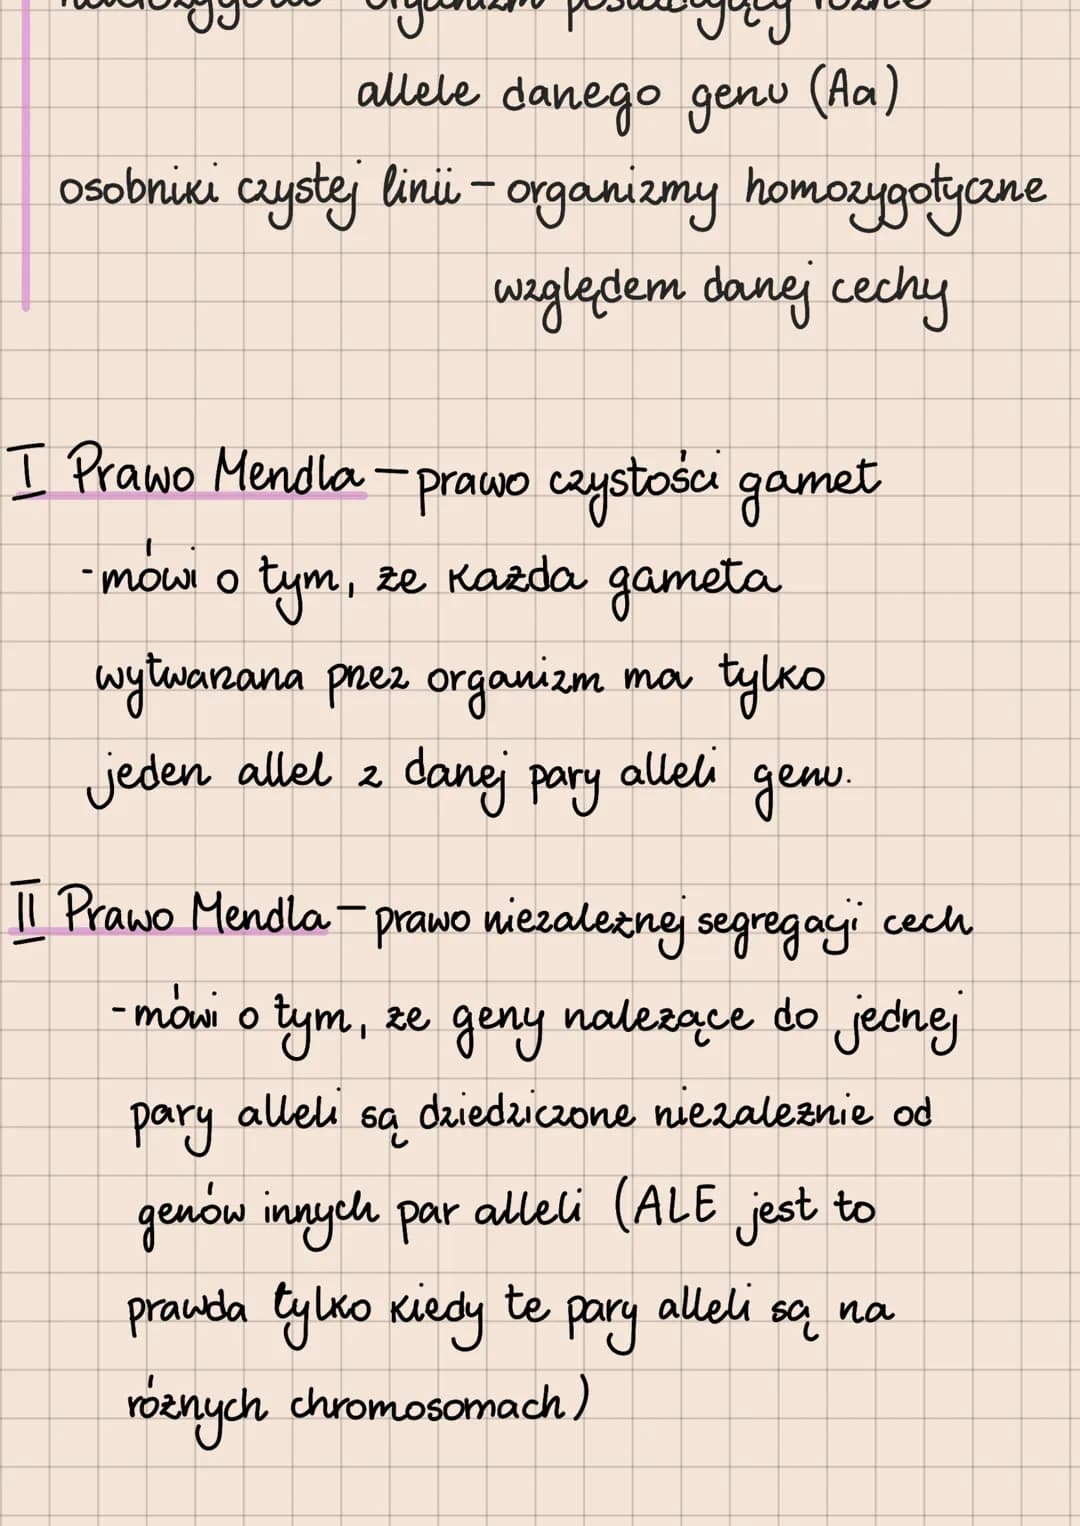 organizm posiadający różne
allele danego genu (Aa)
osobniki czystej linii - organizmy homozygotyczne
względem danej cechy
I Prawo Mendla - prawo czystości gamet
- mówi o tym, że każda gameta
wytwarzana przez organizm ma tylko
jeden allel z danej pary alleli genu.
II Prawo Mendla - prawo niezależnej segregacji cech
- mówi o tym, że geny należące do jednej
pary alleli są dziedziczone niezależnie od
genów innych par alleli (ALE jest to
prawda tylko kiedy te pary alleli są na
różnych chromosomach)